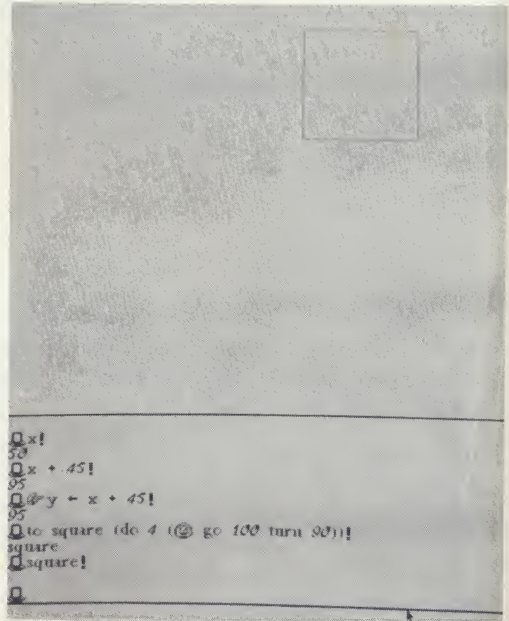 x!
50
x + 45!
95
☞ y ← x + 45!
95
to square (do 4 (☺ go 100 turn 90))!
square
square!